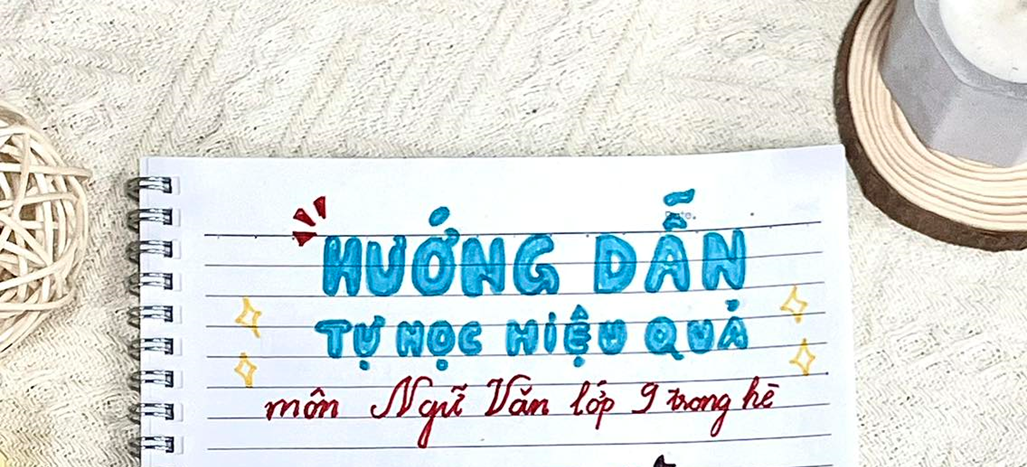 HƯỚNG DẪN
TỰ HỌC HIỆU QUẢ
môn Ngữ Văn lớp 9 trong hè